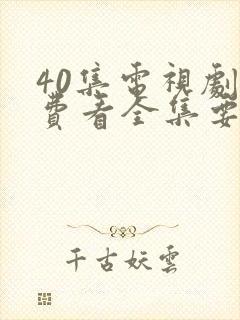 40集電視劇
費看全集要
千古妖雲